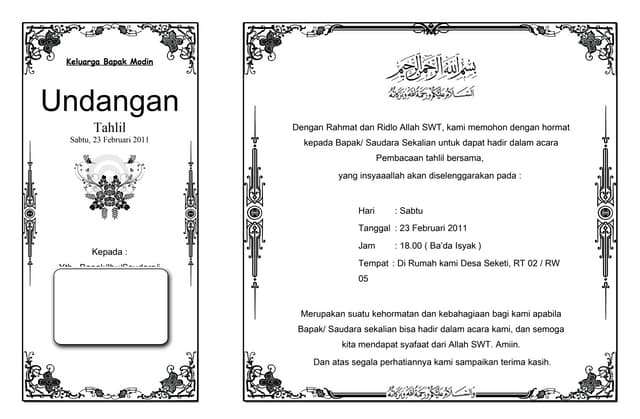 Keluarga Bapak Modin
Undangan
Tahlil
Sabtu, 23 Februari 2011
Kepada :
Yth. Bapak/Ibu/Saudara/i
بسم الله الرحمن الرحيم
السلام عليكم ورحمة الله وبركاته
Dengan Rahmat dan Ridlo Allah SWT, kami memohon dengan hormat
kepada Bapak/ Saudara Sekalian untuk dapat hadir dalam acara
Pembacaan tahlil bersama,
yang insyaaallah akan diselenggarakan pada :
Hari : Sabtu
Tanggal : 23 Februari 2011
Jam : 18.00 ( Ba’da Isyak )
Tempat : Di Rumah kami Desa Seketi, RT 02 / RW
05
Merupakan suatu kehormatan dan kebahagiaan bagi kami apabila
Bapak/ Saudara sekalian bisa hadir dalam acara kami, dan semoga
kita mendapat syafaat dari Allah SWT. Amiin.
Dan atas segala perhatiannya kami sampaikan terima kasih.
والسلام عليكم ورحمة الله وبركاته